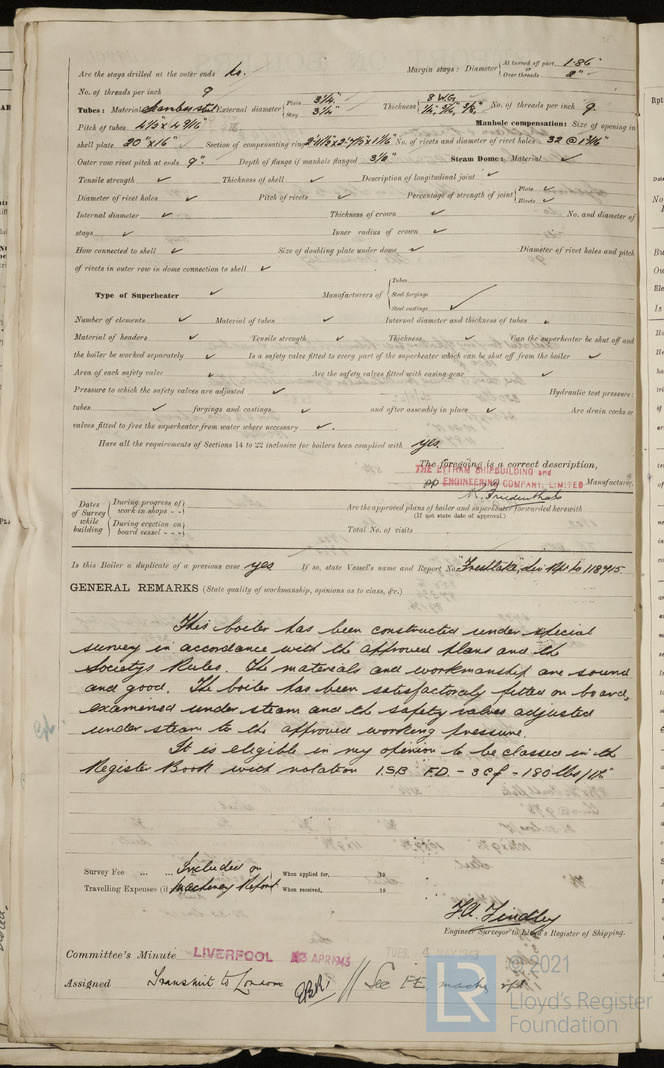 Are the stays drilled at the outer ends No. Margin stays: Diameter { At turned off part, 1.86" or Over threads 2"
No. of threads per inch 9
Tubes: Material External diameter { Plain 3¼" Stay 3¼" Thickness { 8 W.G. ¼", 5/16", 3/8" No. of threads per inch 9.
Pitch of tubes 4½" x 4 9/16" Manhole compensation: Size of opening in
shell plate 20" x 16" Section of compensating ring No. of rivets and diameter of rivet holes 32 @ 1 3/16"
Outer row rivet pitch at ends 9". Depth of flange if manhole flanged 3⅛" Steam Dome: Material ✓
Tensile strength ✓ Thickness of shell ✓ Description of longitudinal joint ✓
Diameter of rivet holes ✓ Pitch of rivets ✓ Percentage of strength of joint { Plate ✓ Rivets ✓
Internal diameter ✓ Thickness of crown ✓ No. and diameter of
stays ✓ Inner radius of crown ✓
How connected to shell ✓ Size of doubling plate under dome ✓ Diameter of rivet holes and pitch
of rivets in outer row in dome connection to shell ✓
Type of Superheater ✓ Manufacturers of { Tubes Steel forgings Steel castings ✓
Number of elements ✓ Material of tubes ✓ Internal diameter and thickness of tubes ✓
Material of headers ✓ Tensile strength ✓ Thickness ✓ Can the superheater be shut off and
the boiler be worked separately ✓ Is a safety valve fitted to every part of the superheater which can be shut off from the boiler ✓
Area of each safety valve ✓ Are the safety valves fitted with easing gear ✓
Pressure to which the safety valves are adjusted ✓ Hydraulic test pressure:
tubes ✓ forgings and castings ✓ and after assembly in place ✓ Are drain cocks or
valves fitted to free the superheater from water where necessary ✓.
Have all the requirements of Sections 14 to 22 inclusive for boilers been complied with yes
The foregoing is a correct description,
THE LYTHAM SHIPBUILDING and
pp ENGINEERING COMPANY, LIMITED Manufacturer.
Dates of Survey while building { During progress of work in shops - - } { During erection on board vessel - - - }
Are the approved plans of boiler and superheater forwarded herewith
(If not state date of approval.)
Total No. of visits
Is this Boiler a duplicate of a previous case yes If so, state Vessel's name and Report No. Rpt No 118915.
GENERAL REMARKS (State quality of workmanship, opinions as to class, &c.)
This boiler has been constructed under special
survey in accordance with the approved plans and the
Society's Rules. The materials and workmanship are sound
and good. The boiler has been satisfactorily fitted on board,
examined under steam and the safety valves adjusted
under steam to the approved working pressure.
It is eligible in my opinion to be classed in the
Register Book with notation 1.S.B F.D. - 3 c f - 180 lbs/□"
Survey Fee ... ... Included on When applied for, 19
Travelling Expenses (if Machinery Report. When received, 19
Engineer Surveyor to Lloyd's Register of Shipping.
Committee's Minute LIVERPOOL APR 1943 TUES. 4 MAY 1943
Assigned Transmit to London // See F.E. machy rpt
© 2021
Lloyd's Register
Foundation
LR